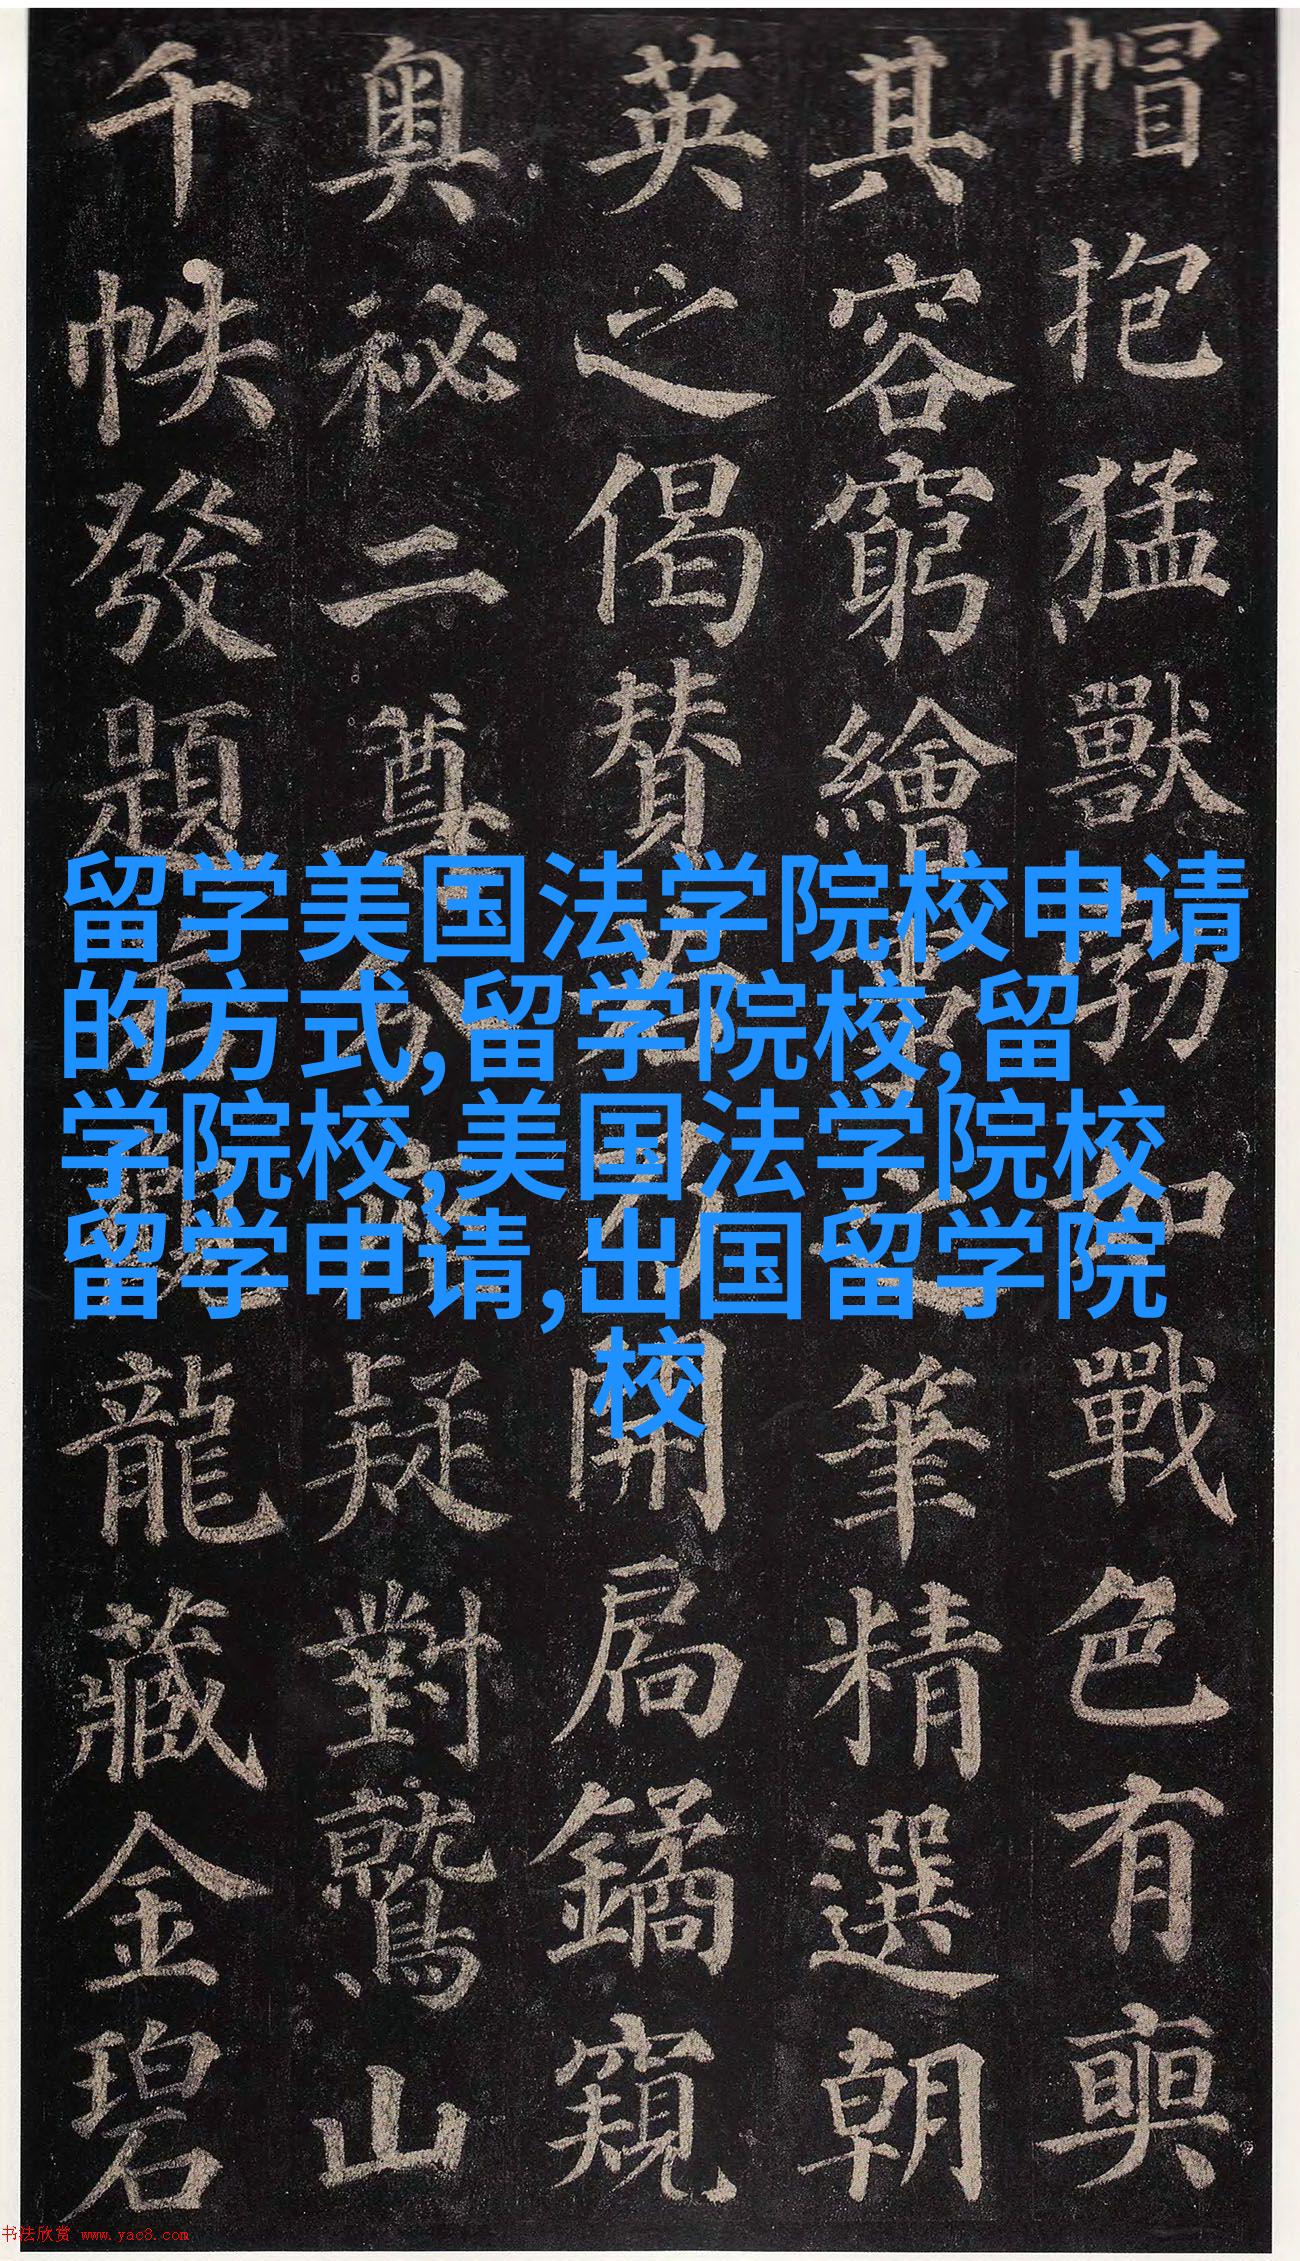 留学美国法学院校申请
的方式,留学院校,留
学院校,美国法学院校
留学申请,出国留学院
校
帽抱猛獸勃如戰色有奭
其容窮繪事之筆精選朝
英之偈贊若乃開扃鐍窺
奧祕二尊分座疑對鷲山
千帙發題若觀龍藏金碧
书法欣赏 www.yac8.com